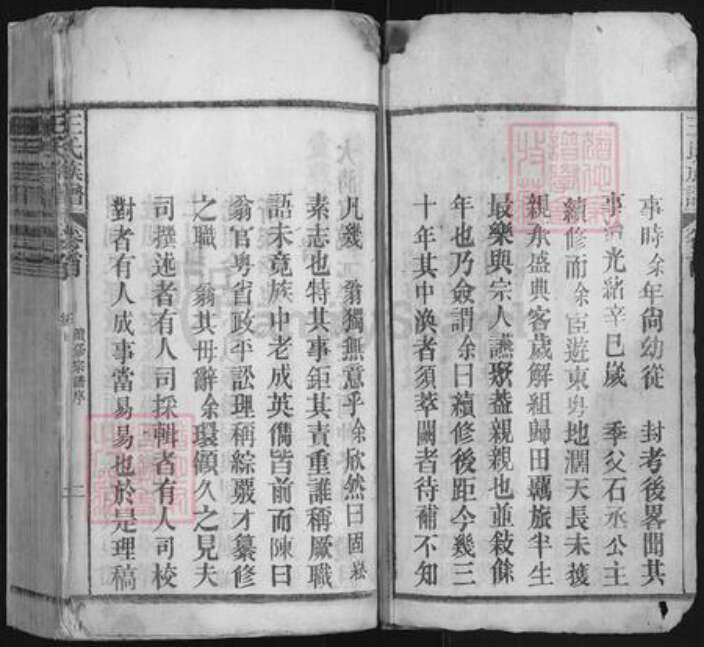 事時余年尙幼從　封考後畧聞其
事當光緒辛巳歲　季父石丞公主
續修而余宦遊東粵地濶天長未獲
親承盛典客歲解組歸田羈旅半生
最樂與宗人讌聚葢親親也並敍餘
年也乃僉謂余曰續修後距今幾三
十年其中渙者須萃闕者待補不知
凡幾　翁獨無意乎余欣然曰固菘
素志也特其事鉅其責重誰稱厥職
語未竟族中老成英儁皆前而陳曰
翁官粵省政平訟理稱綜嚴才纂修
之職　翁其毋辭余環顧久之見夫
司撰述者有人司採輯者有人司校
對者有人成事當易易也於是理稿
王氏族譜
卷首
續修宗譜序
二
王氏族譜
卷首